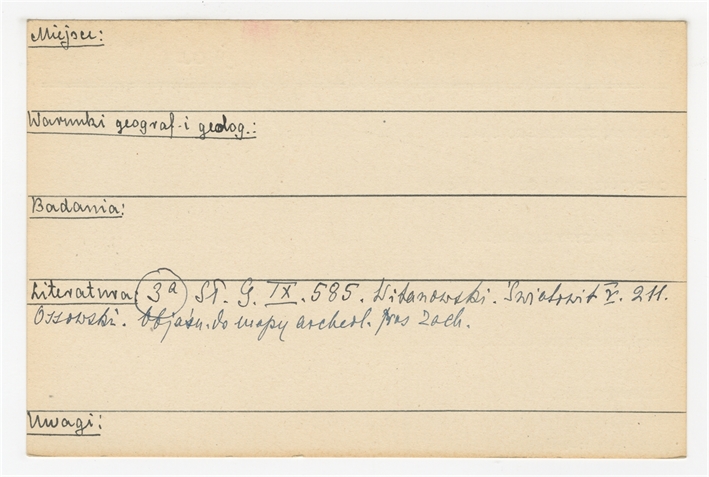 Miejsce:
Warunki geograf. i geolog.:
Badania:
Literatura: 3a Sł. G. IX. 585. Witanowski. Światowit V. 211.
Ossowski. Objaśn. do mapy archeol. Prus Zach.
Uwagi: